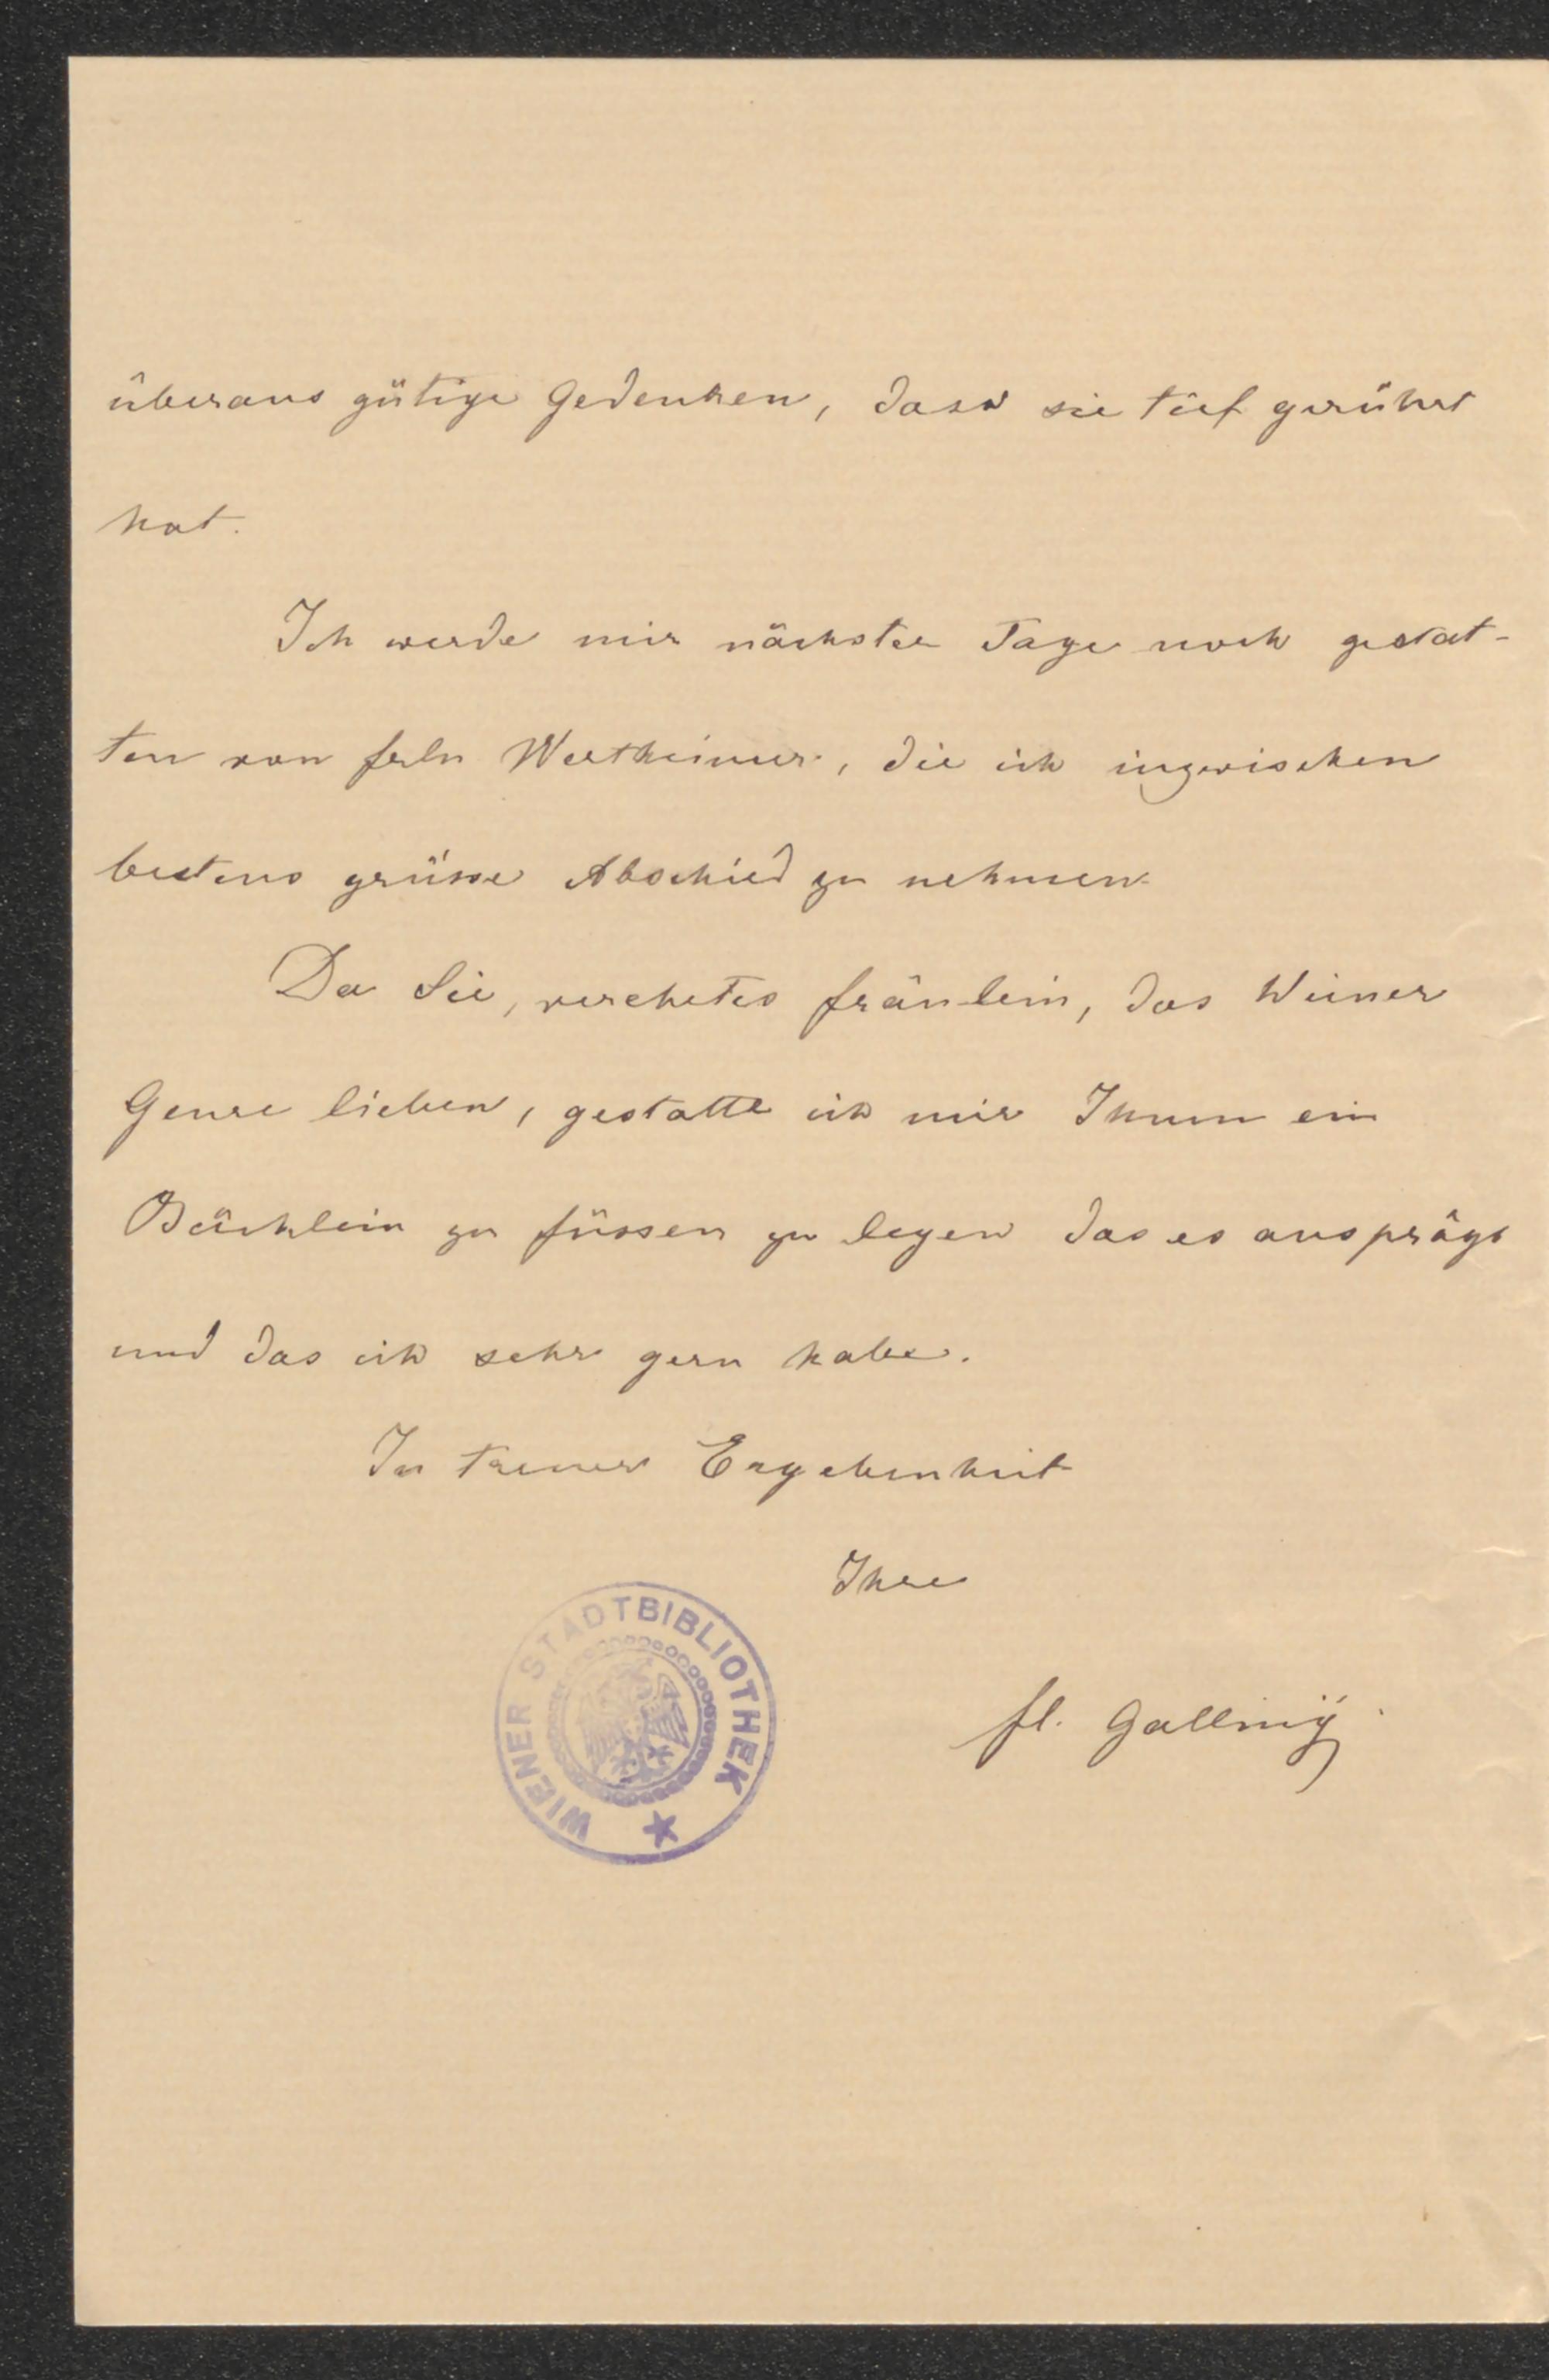 überaus gütige Gedenken, dass sie tief gerührt
hat.
Ich werde mir nächster Tage noch gestat-
ten von frln Wertheimer, die ich inzwischen
bestens grüsse Abschied zu nehmen.
Da Sie, verehrtes fräulein, das Wiener
Genre lieben, gestatte ich mir Ihnen ein
Büchlein zu füssen zu legen das es ausprägt
und das ich sehr gern habe.
In treuer Ergebenheit
Ihre
fl. Galliny
WIENER STADTBIBLIOTHEK